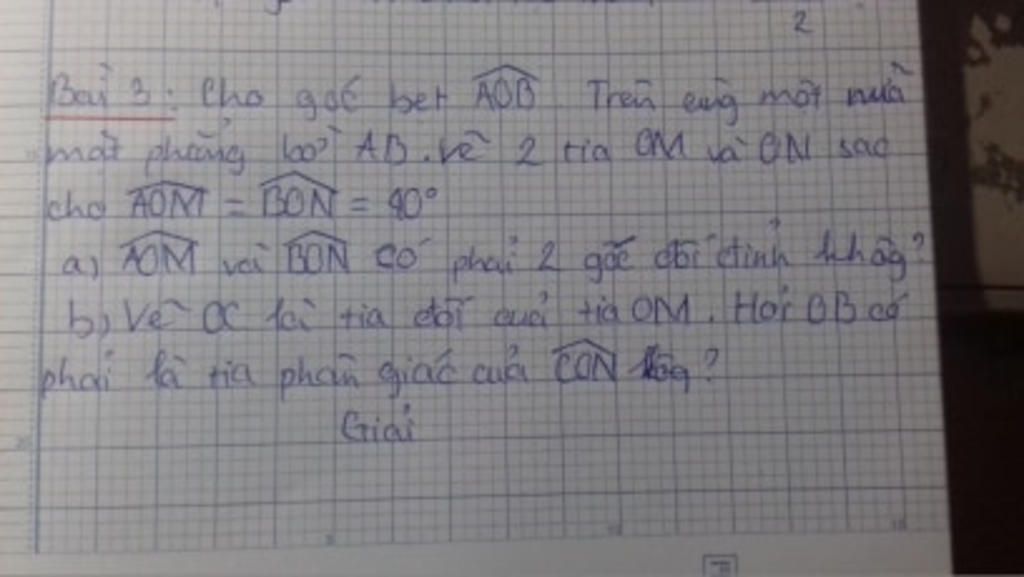 2
Bài 3: Cho góc bẹt AOB. Trên cùng một nửa
mặt phẳng bờ AB. vẽ 2 tia OM và ON sao
cho AOM = BON = 40°
a) AOM và BON có phải 2 góc đối đỉnh không?
b) Vẽ OC là tia đối của tia OM. Hỏi OB có
phải là tia phân giác của CON không?
Giải